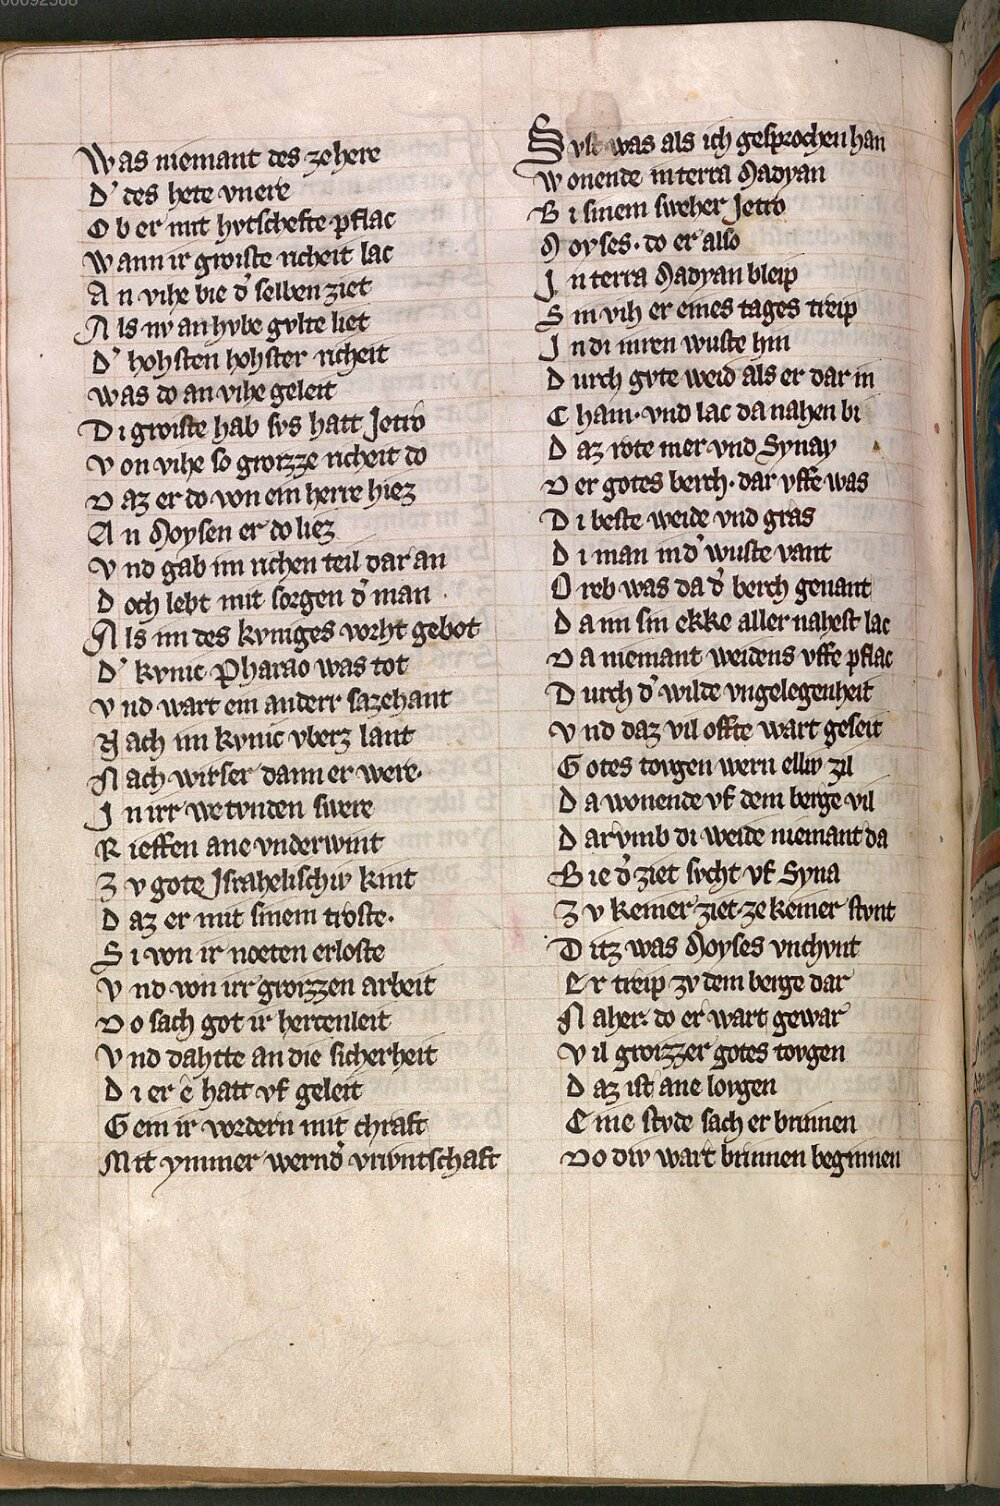 00092588
Was niemant des ze here
D' des hete vnere
Ob er mit hvtschefte pflac
Wann ir groiste richeit lac
An vihe bie d' selben ziet
Als nv an hvbe gvlte liet
D' hohsten hohster richeit
Was do an vihe geleit
Di groiste hab svs hatt Jetro
Von vihe so groizze richeit do
Daz er do von ein herre hiez
An Moysen er do liez
Vnd gab im richen teil dar an
Doch lebt mit sorgen d' man
Als im des kyniges vorht gebot
D' kynic Pharao was tot
Vnd wart ein anderr sazehant
Nach im kynic vberz lant
Nach wirser dann er were.
In irr we tvnden swere
Rieffen ane vnderwint
Zv gote Israhelischiv kint
Daz er mit sinem troste.
Si von ir noeten erloste
Vnd von irr groizzen arbeit
Do sach got ir hertenleit
Vnd dahtte an die sicherheit
Di er ê hatt vf geleit
Gein ir vordern mit chraft
Mit ymmer wernd' vrivntschaft
Svst was als ich gesprochen han
Wonende in terra Madyan
Bi sinem sweher Jetro
Moyses. do er also
In terra Madyan bleip
Sin vih er eines tages treip
In di inren wuste hin
Durch gvte weid als er dar in
Cham. vnd lac da nahen bi
Daz rote mer vnd Synay
Der gotes berch. dar vffe was
Di beste weide vnd gras
Di man in d' wuste vant
Oreb was da d' berch genant
Da im sin ekke aller nahest lac
Da niemant weidens vffe pflac
Durch d' wilde vngelegenheit
Vnd daz vil offte wart geseit
Gotes tovgen wern elliv zil
Da wonende vf dem berge vil
Darvmb di weide niemant da
Bie d' ziet svcht vf Syna
Zv keiner ziet. ze keiner stvnt
Ditz was Moyses vnchvnt
Er treip zv dem berge dar
Naher. do er wart gewar
Vil groizzer gotes tovgen
Daz ist ane lovgen
Eine stvde sach er brinnen
Do div wart brinnen beginnen